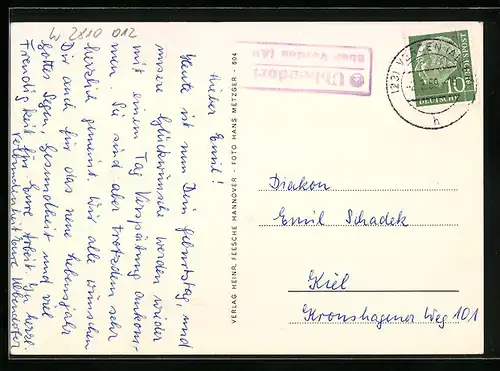 W 2810 012
Lieber Emil!
Heute ist nun Dein Geburtstag, und
unsere Glückwünsche werden wieder
mit einem Tag Verspätung ankom-
men. Sie sind aber trotzdem sehr
herzlich gemeint. Wir alle wünschen
Dir auch für das neue Lebensjahr
Gottes Segen, Gesundheit und viel
Freudigkeit für Eure Arbeit. In herzl.
Verbundenheit Eure
VERLAG HEINR. FEESCHE HANNOVER - FOTO HANS METZGER - 504
Uhlendorf
über Verden (Aller)
(23) VERDEN
h
10
DEUTSCHE
BUNDESPOST
Diakon
Emil Schadek
Kiel
Kronshagener Weg 101